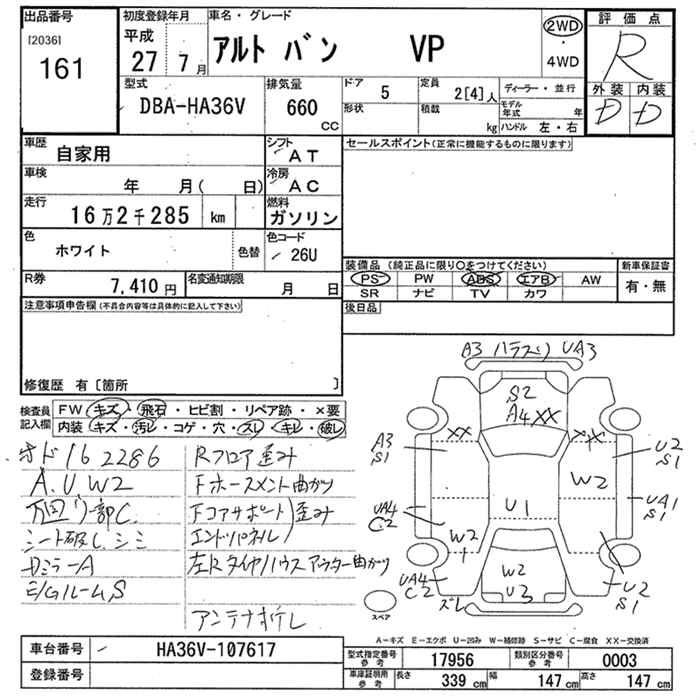 出品番号
[2036]
161
初度登録年月
平成
27 7月
車名・グレード
アルト バン VP
2WD
・
4WD
評価点
R
外装 内装
D D
型式
DBA-HA36V
排気量
660 CC
ドア 5
形状
定員 2[4]人
積載 kg
ディーラー・並行
モデル年式 年
ハンドル 左・右
車歴
自家用
シフト
AT
車検
年 月( 日)
冷房
AC
走行
16万2千285 km
燃料
ガソリン
色
ホワイト
色替
色コード
26U
R券
7,410円
名変通知期限
月 日
セールスポイント(正常に機能するものに限ります)
装備品 (純正品に限り○をつけてください)
PS PW ABS エアB AW
SR ナビ TV カワ
新車保証書
有・無
後日品
注意事項申告欄(不具合内容等は具体的に記入して下さい)
修復歴 有〔箇所 〕
検査員記入欄
FW キズ・飛石・ヒビ割・リペア跡・×要
内装 キズ・汚レ・コゲ・穴・スレ・キレ・破レ
オド162286
A.U W2
下回り部C
シート破レ シミ
DミラーA
E/GルームS
Rフロア歪み
Fホースメント曲がり
Fコアサポート
エンドパネル
歪み
左Rタイヤハウスアウター曲がり
アンテナ折レ
A3 ハラズリ UA3
S2
A4 XX
XX
XX
A3
S1
U2
S1
W2
UA4
C2
UA1
S1
U1
W2
W2
U3
UA4
C2
ズレ
U2
S1
スペア
A-キズ E-エクボ U-凹み W-補修跡 S-サビ C-腐食 XX-交換済
車台番号
HA36V-107617
登録番号
型式指定番号
参考
17956
類別区分番号
参考
0003
車庫証明
参考
長さ 339 cm 幅 147 cm 高さ 147 cm